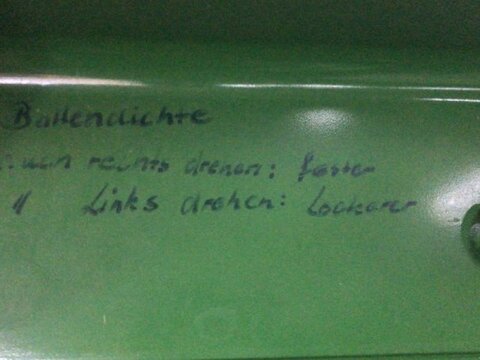 Ballendichte
nach rechts drehen: fester
" Links drehen: Lockerer